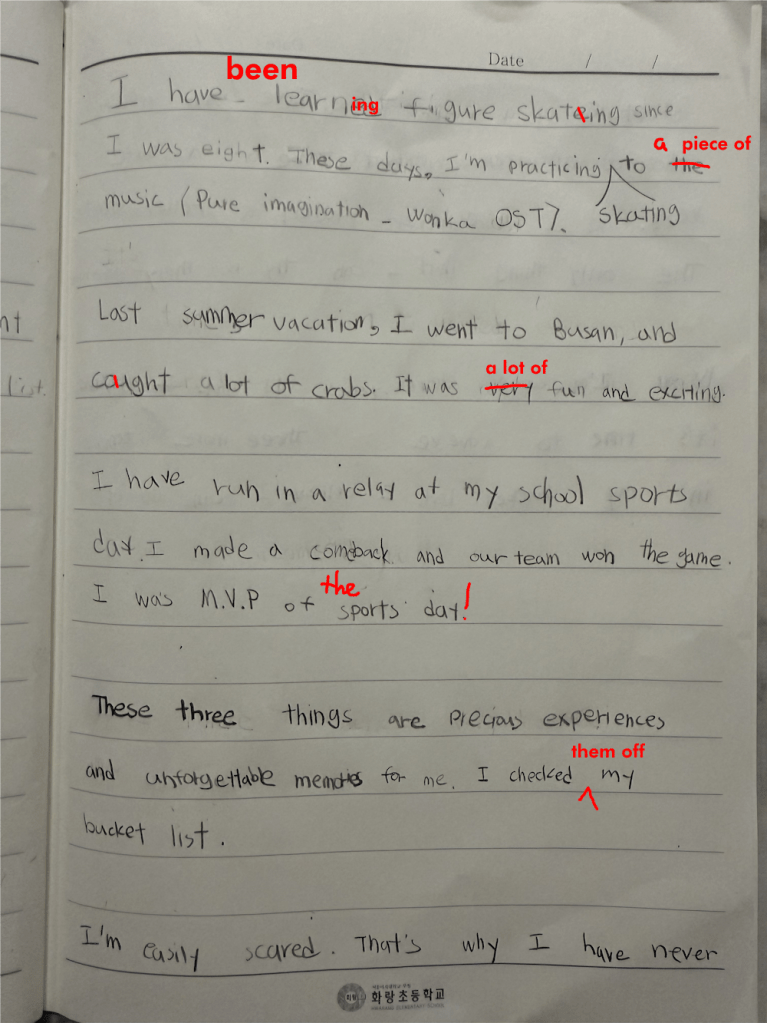 Date / /
been
I have learning figure skating since
a piece of
I was eight. These days, I'm practicing to the
music (Pure imagination - Wonka OST). skating
Last summer vacation, I went to Busan, and
a lot of
caught a lot of crabs. It was very fun and exciting.
I have run in a relay at my school sports
day. I made a comeback and our team won the game.
the
I was M.V.P of sports day!
These three things are precious experiences
and unforgettable memories for me. I checked my
them off
bucket list.
I'm easily scared. That's why I have never
화랑초등학교
nt
list.